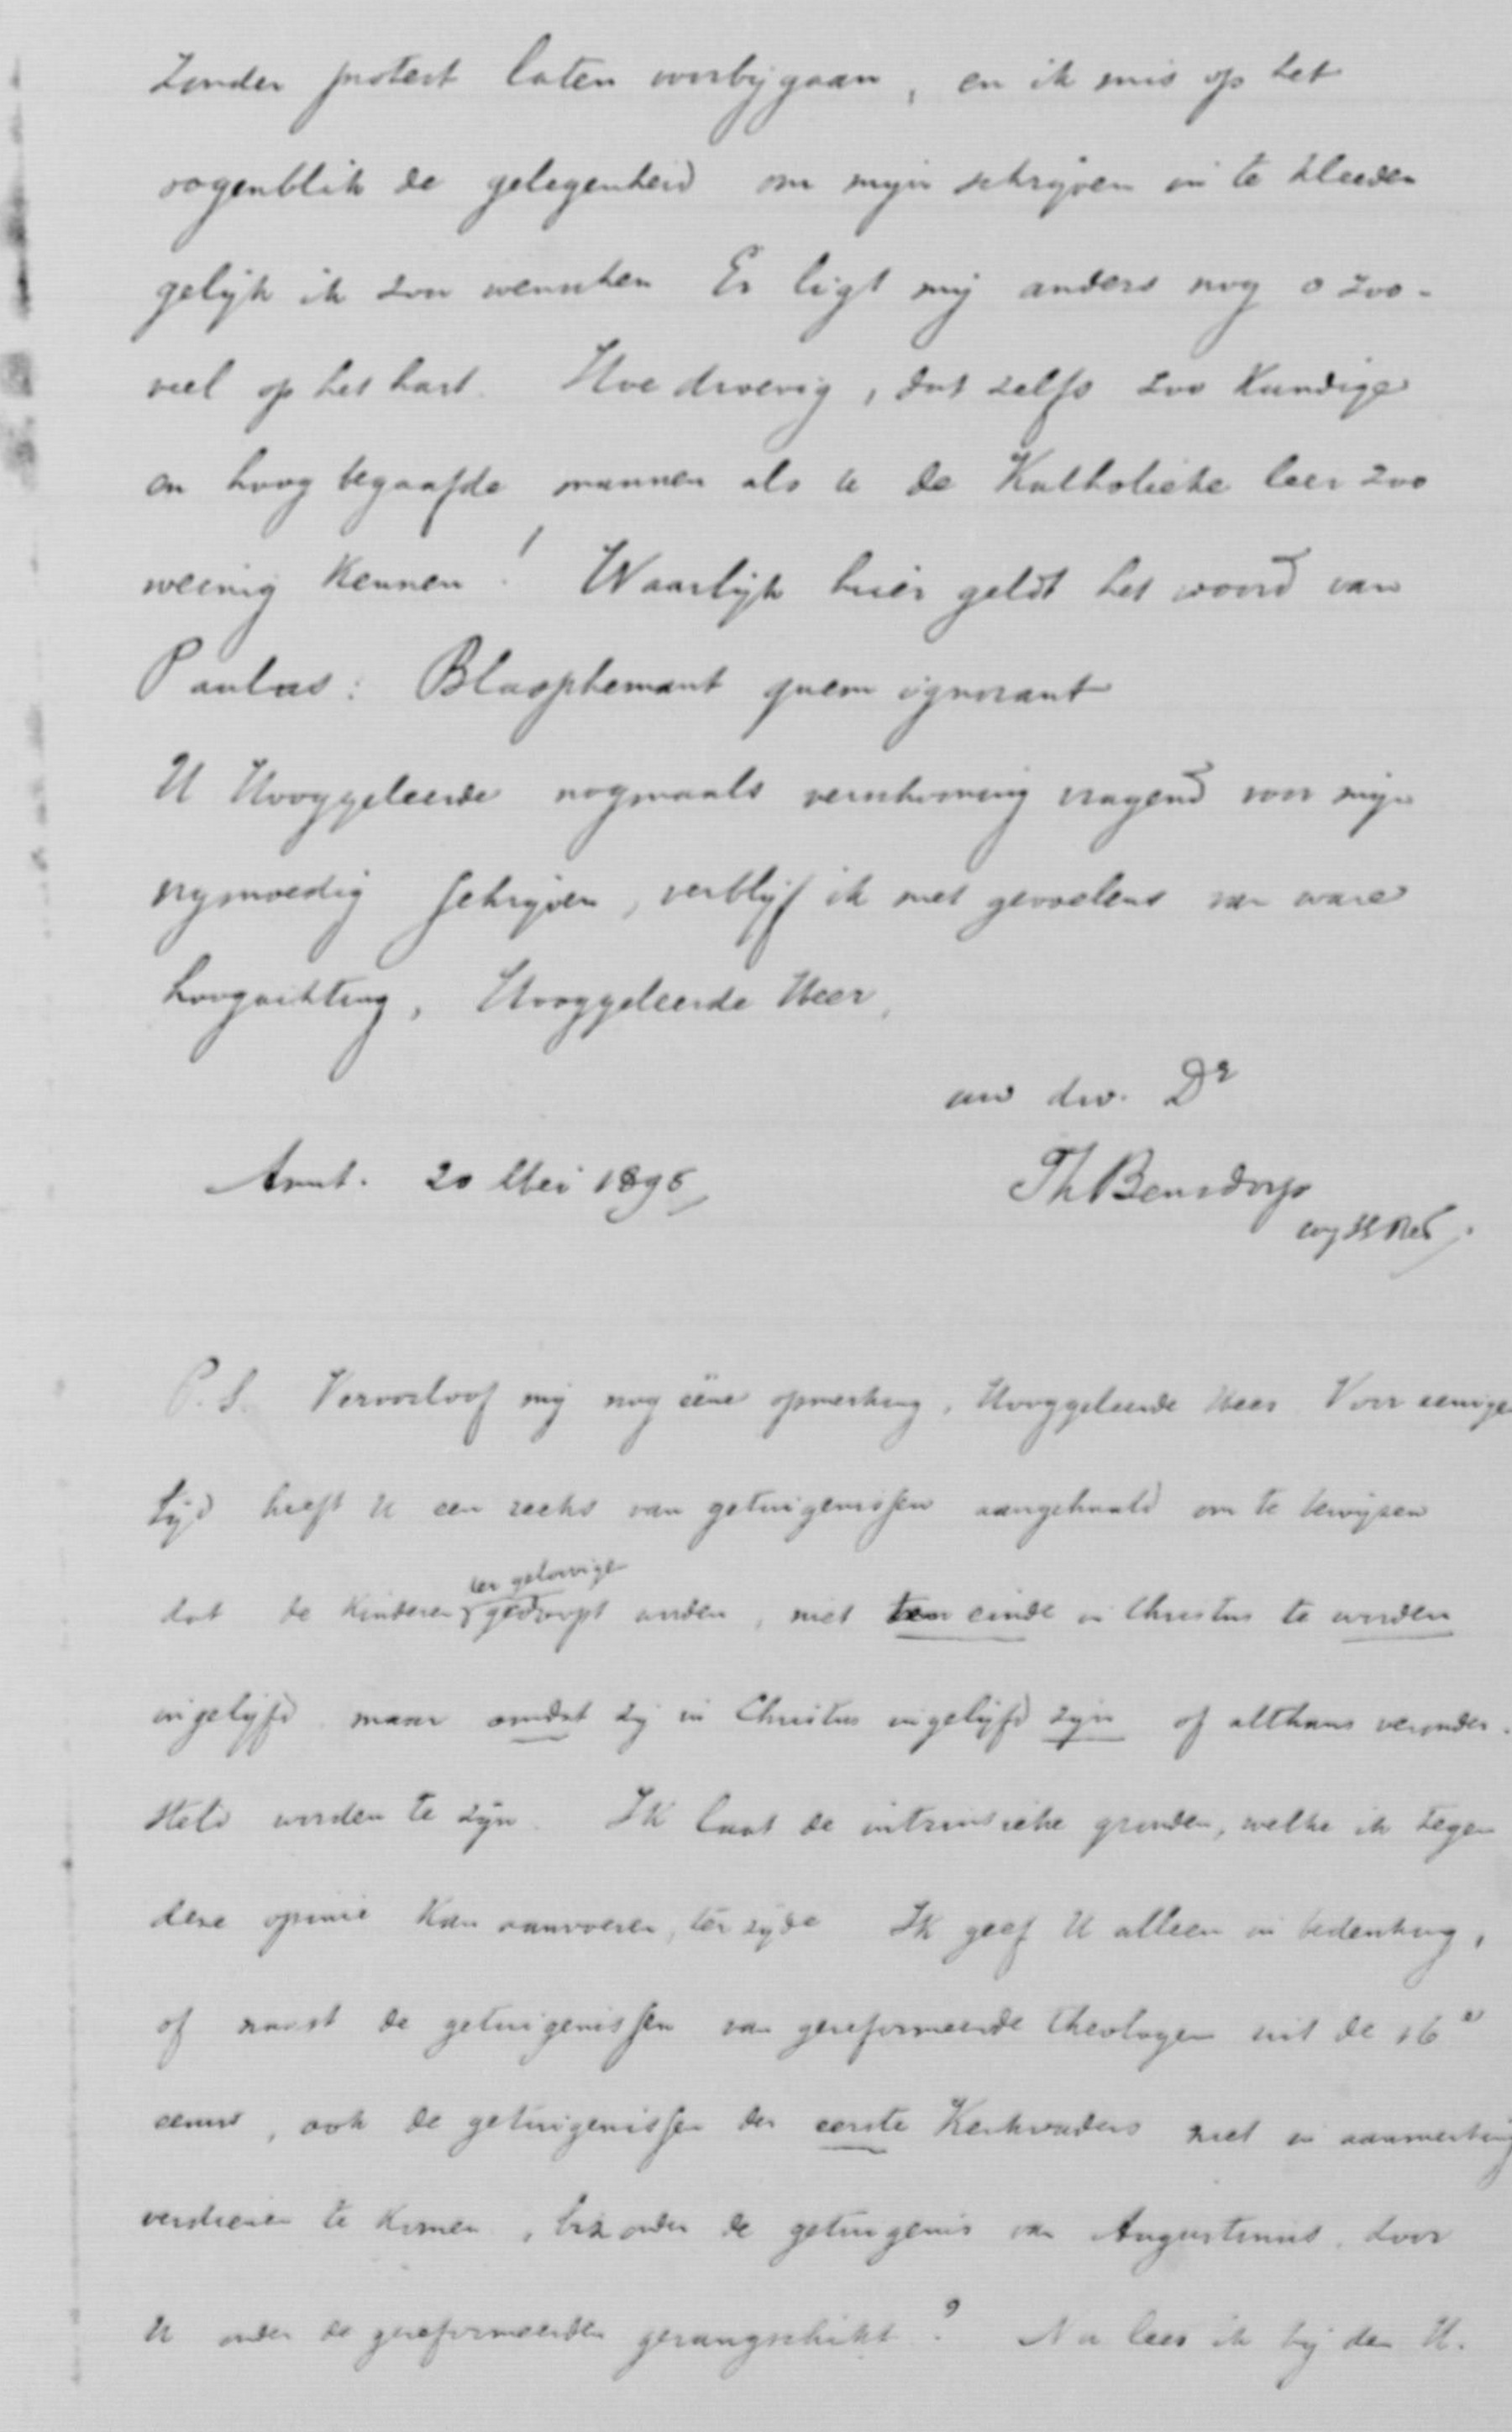 Zonder protest laten voorbijgaan, en ik mis op het
oogenblik de gelegenheid om mijn schrijven in te kleeden
gelijk ik zou wenschen Er ligt mij anders nog o zoo-
veel op het hart. Hoe droevig, dat zelfs zoo kundige
en hoog begaafde mannen als u de Katholieke leer zoo
weinig kennen! Waarlijk hier geldt het woord van
Paulus: Blasphemant quem ignorant
U Hooggeleerde nogmaals verschooning vragend voor mijn
vrymoedig schrijven, verblijf ik met gevoelens van ware
hoogachting, Hooggeleerde Heer,
uw dw. Dr
Amst. 20 Mei 1896
Th Bensdorp
P.S. Veroorloof mij nog ééne opmerking, Hooggeleerde Heer Voor eenige
tijd heeft U een reeks van getuigenissen aangehaald om te bewijzen
der geloovige
dat de kinderen gedoopt worden, niet ten einde in Christus te worden
ingelijfd maar omdat zij in Christus ingelijfd zijn of althans veronder-
steld worden te zijn. Ik laat de intrinsieke gronden, welke ik tegen
deze opinie kan aanvoeren, ter zijde Ik geef U alleen in bedenking,
of naast de getuigenissen van gereformeerde theologen uit de 16e
eeuw, ook de getuigenissen der eerste Kerkvaders niet in aanmerking
verdienen te komen, bizonder de getuigenis van Augustinus, door
U onder de gereformeerden gerangschikt? Nu lees ik bij den H.